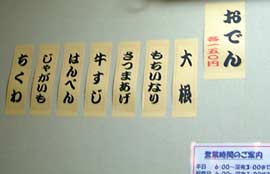 おでん
各一五〇円
大根
もちいなり
さつまあげ
牛すじ
はんぺん
じゃがいも
ちくわ
営業時間のご案内
平日 6:00~深夜3:00まで